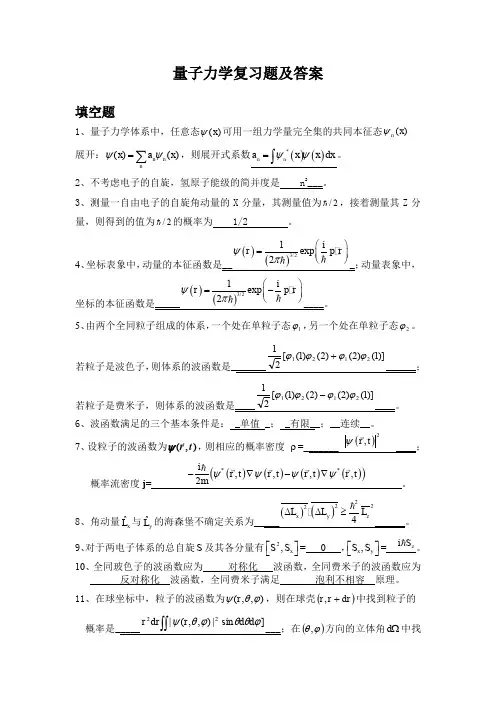 量子力学复习题及答案
填空题
1、量子力学体系中，任意态ψ(x)可用一组力学量完全集的共同本征态ψₙ(x)
展开：ψ(x)=∑ₙ aₙψₙ(x)，则展开式系数aₙ=∫ψₙ*(x)ψ(x)dx。
2、不考虑电子的自旋，氢原子能级的简并度是 n²___。
3、测量一自由电子的自旋角动量的X分量，其测量值为ℏ/2，接着测量其Z分
量，则得到的值为ℏ/2的概率为 1/2 。
4、坐标表象中，动量的本征函数是__ψ(r)=1/(2πℏ)^{3/2} exp(i/ℏ p·r)_;动量表象中，
坐标的本征函数是_____ψ(r)=1/(2πℏ)^{3/2} exp(-i/ℏ p·r)____。
5、由两个全同粒子组成的体系，一个处在单粒子态φ₁,另一个处在单粒子态φ₂。
若粒子是波色子，则体系的波函数是_______1/√2[φ₁(1)φ₂(2)+φ₁(2)φ₂(1)]；
若粒子是费米子，则体系的波函数是____1/√2[φ₁(1)φ₂(2)−φ₁(2)φ₂(1)]____。
6、波函数满足的三个基本条件是： _单值 _； _有限__；__连续__。
7、设粒子的波函数为ψ(r,t),则相应的概率密度 ρ=_______|ψ(r,t)|²____;
概率流密度j=−iℏ/2m(ψ*(r,t)∇ψ(r,t)−ψ(r,t)∇ψ*(r,t))。
8、角动量L̂ₓ与L̂ᵧ的海森堡不确定关系为_____(ΔLₓ)²·(ΔLᵧ)²≥ℏ²/4 L̂_z²_____。
9、对于两电子体系的总自旋S及其各分量有[S²,Sₓ]= 0 ,[Sₓ,Sᵧ]= iℏS_z。
10、全同玻色子的波函数应为 对称化 波函数，全同费米子的波函数应为
反对称化 波函数，全同费米子满足 泡利不相容 原理。
11、在球坐标中，粒子的波函数为ψ(r,θ,φ)，则在球壳(r,r+dr)中找到粒子的
概率是_____r²dr∬|ψ(r,θ,φ)|²sinθdθdφ]___；在(θ,φ)方向的立体角dΩ中找